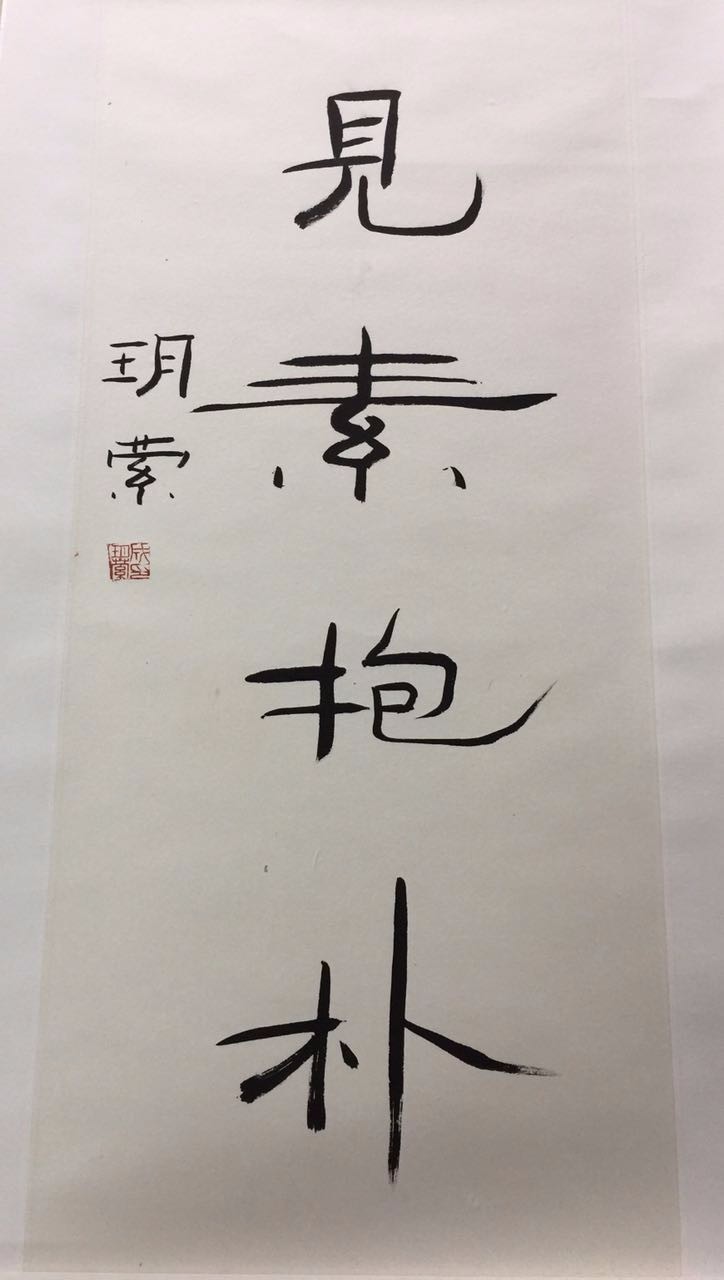 見素抱朴
玥萦